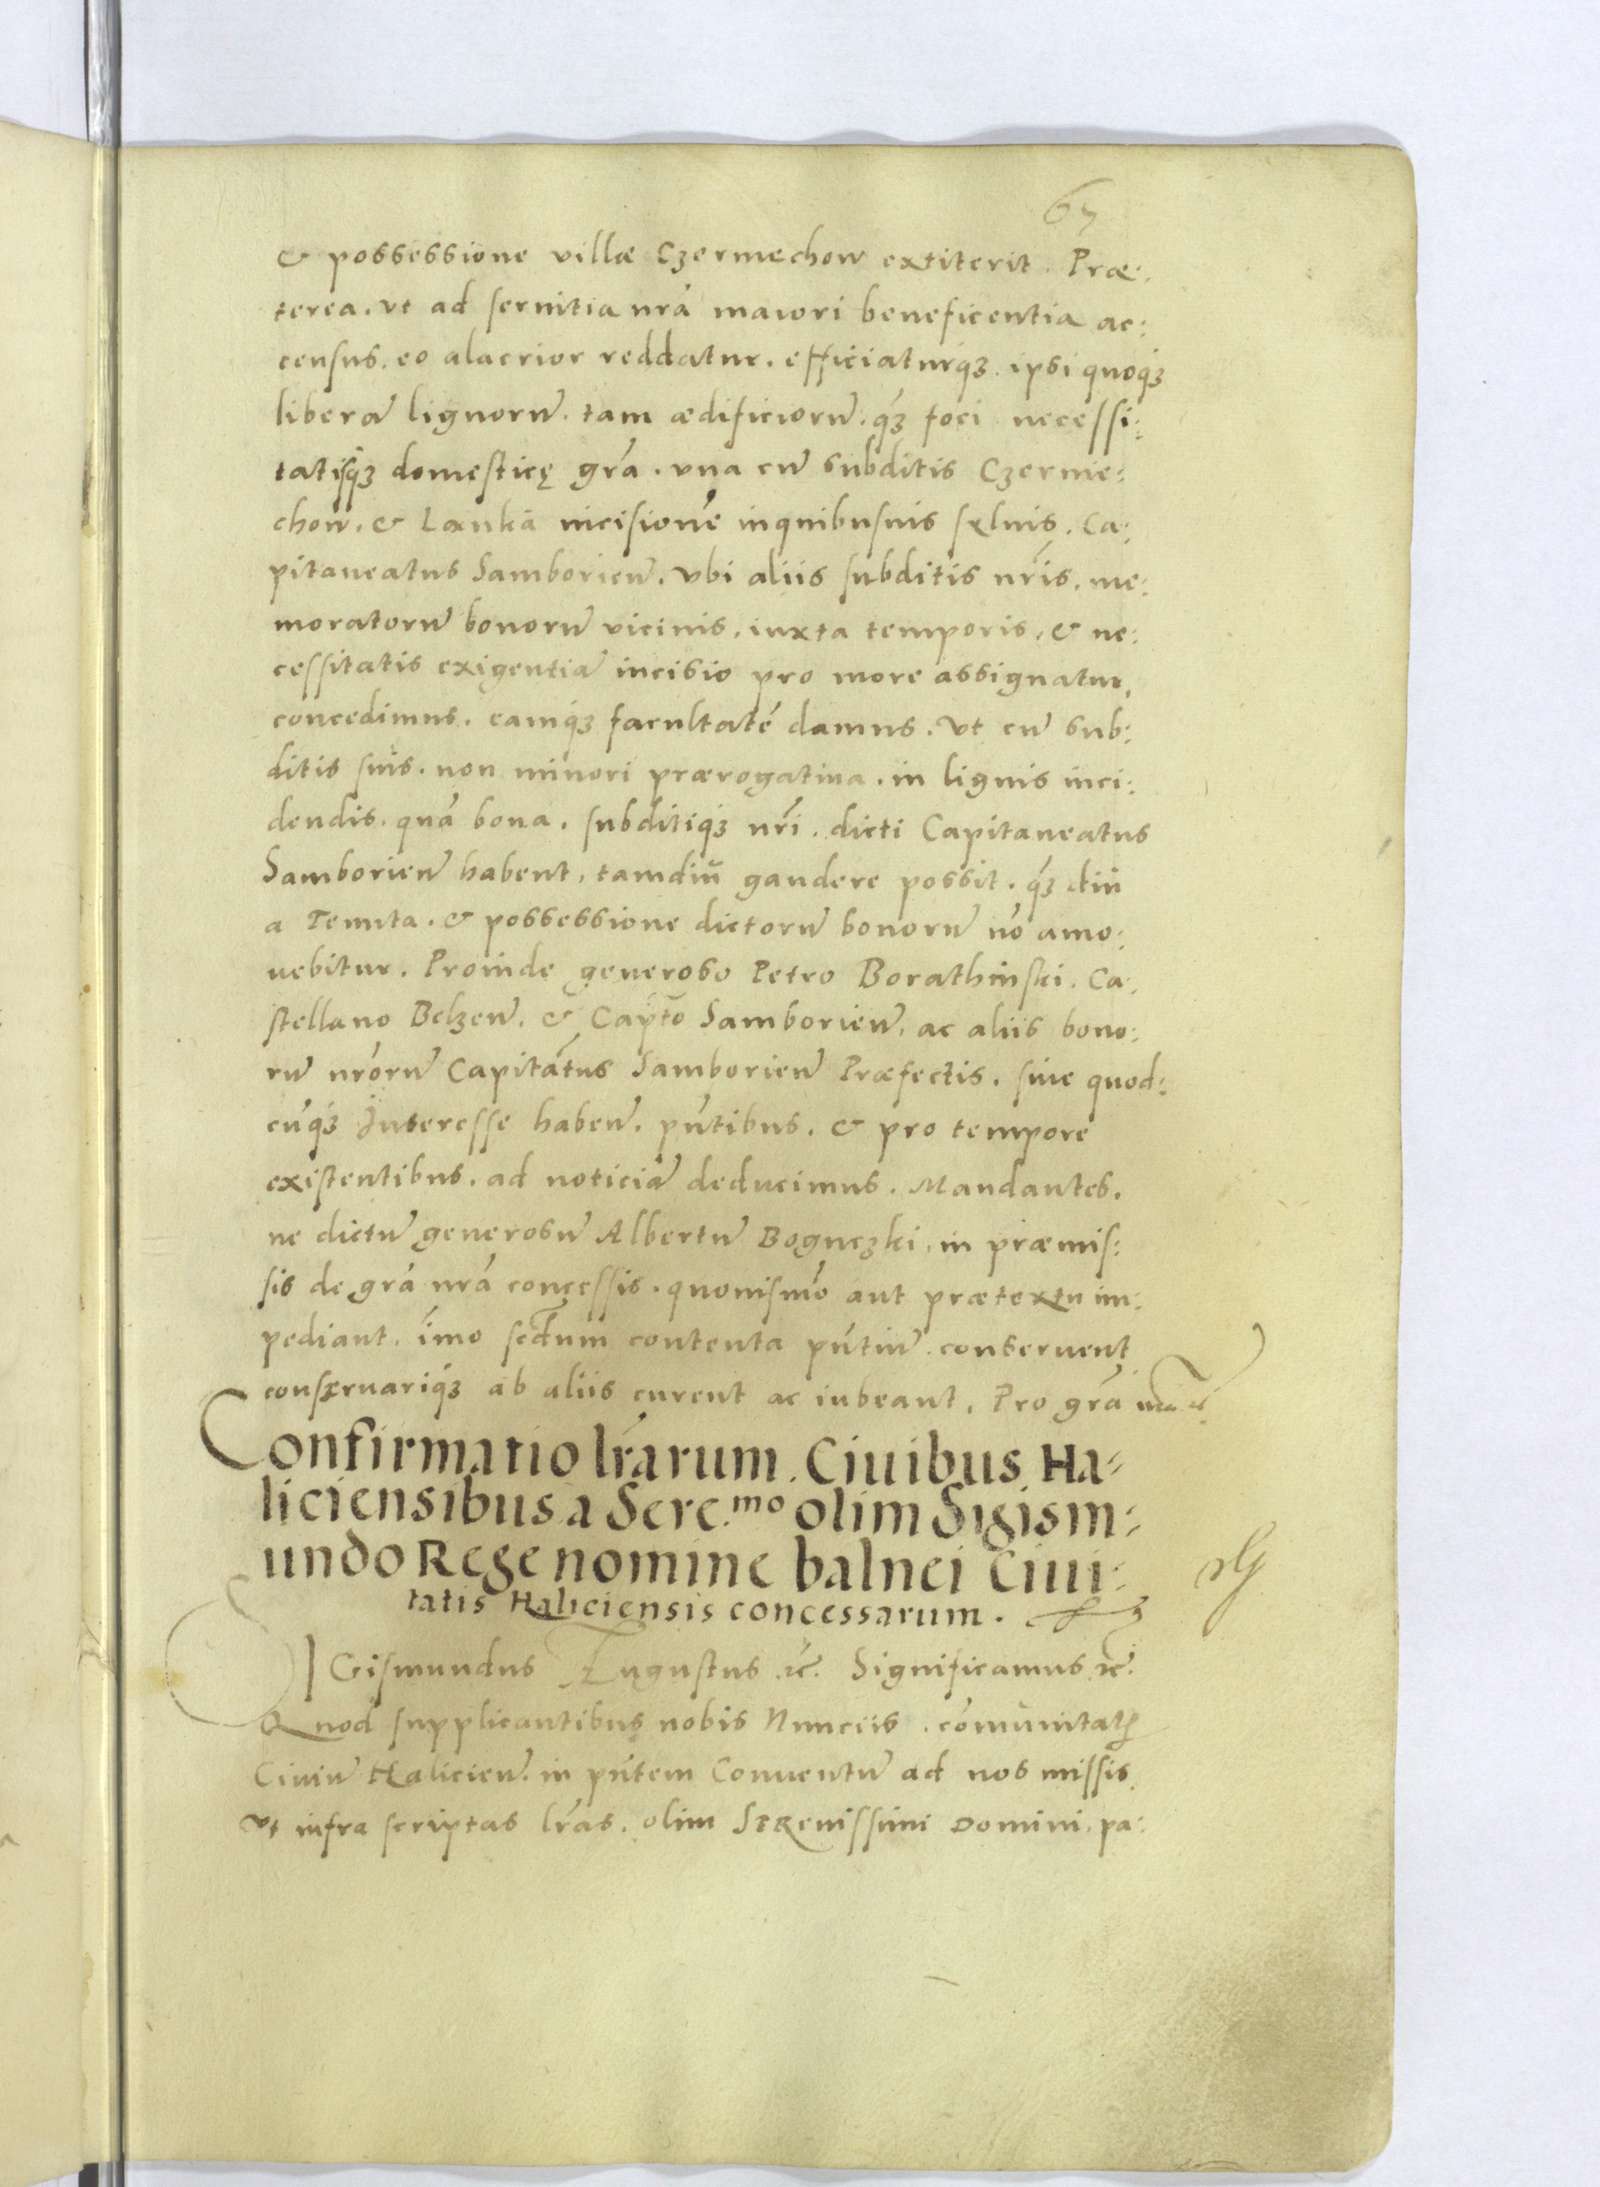 67
& possessione villæ Czermechow extiterit. Præ:
terea. vt ad seruitia nrã maiori beneficentia ac:
census. eo alacrior reddatur. efficiaturqʒ. ipsi quoqʒ
liberã lignorũ. tam ædificiorũ. qʒ foci necessi:
tatisqʒ domesticę grã. vna cũ subditis Czerme:
chow. & Lanka incisionẽ inquibusuis syluis. Ca:
pitaneatus Samborieñ. vbi aliis subditis nrĩs. me:
moratorũ bonorũ vicinis. iuxta temporis. & ne:
cessitatis exigentiã incisio pro more assignatur,
concedimus. eamqʒ facultatẽ damus. vt cũ sub:
ditis suis. non minori prærogatiua. in lignis inci:
dendis. quã bona. subditiqʒ nrĩ. dicti Capitaneatus
Samborieñ habent, tamdiu gaudere possit. qʒ diu
a Tenuta. & possessione dictorũ bonorũ nõ amo:
uebitur. Proinde generoso Petro Borathinski. Ca:
stellano Belzeñ. & Captõ Samborieñ. ac aliis bono:
rũ nrõrũ Capitãtus Samborieñ Præfectis. siue quod:
cũqʒ Interesse habeñ. pñtibus. & pro tempore
existentibus. ad noticiã deducimus. Mandantes.
ne dictũ generosũ Albertũ Boguczki, in præmis:
sis de grã nrã concessis. quouismõ aut prætextu im:
pediant. ĩmo secdũm contenta pñtiũ. conseruent
conseruariqʒ ab aliis curent ac iubeant. Pro grã
Confirmatio lrãrum. Ciuibus Ha-
liciensibus a Sere.mo olim Sigism:
undo Rege nomine balnei Ciui:
tatis Haliciensis concessarum.
SIGismundus Augustus ꝛc̃. Significamus ꝛc̃.
Quod supplicantibus nobis Nunciis. cõmunitatis
Ciuiũ Halicieñ. in pñtem Conuentũ ad nos missis
vt infra scriptas lrãs. olim SERenissimi Domini. pa: